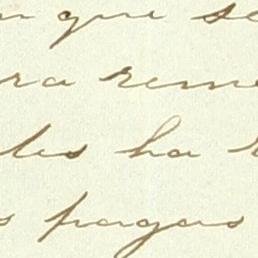 que se
ra reme
les ha
s pagas